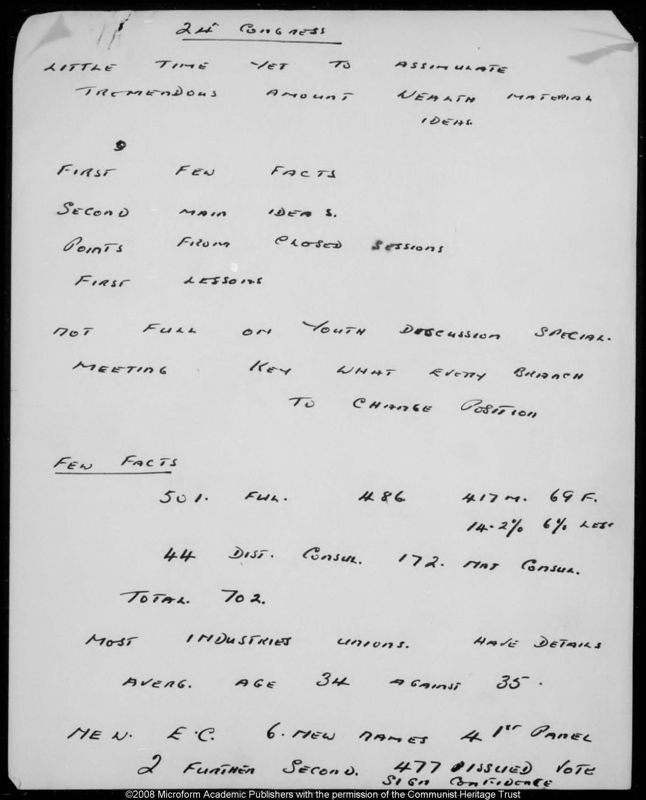 24th CONGRESS
LITTLE TIME YET TO ASSIMULATE
TREMENDOUS AMOUNT WEALTH MATERIAL
IDEAS.
FIRST FEW FACTS
SECOND MAIN IDEAS.
POINTS FROM CLOSED SESSIONS
FIRST LESSONS
NOT FULL ON YOUTH DISCUSSION SPECIAL.
MEETING KEY WHAT EVERY BRANCH
TO CHANGE POSITION
FEW FACTS
501. FUL. 486 417 M. 69 F.
14.2% 6% LESS
44 DIST. CONSUL. 172. NAT CONSUL.
TOTAL 702.
MOST INDUSTRIES UNIONS. HAVE DETAILS
AVERG. AGE 34 AGAINST 35.
NEW. E.C. 6. NEW NAMES 4 1ST PANEL
2 FURTHER SECOND. 477 ISSUED VOTE
SIGN CONFIDENCE
©2008 Microform Academic Publishers with the permission of the Communist Heritage Trust